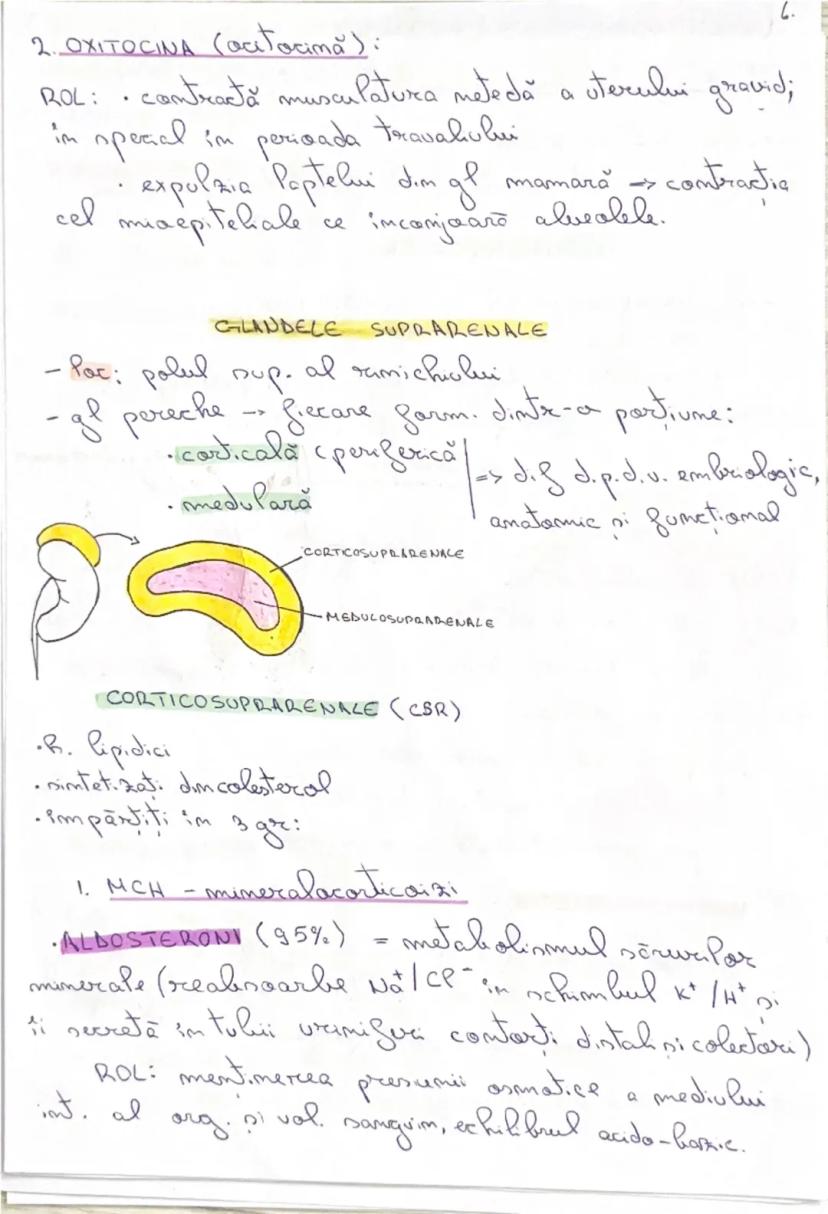 6.
2. OXITOCINA (ocitocină):
ROL: • contractă musculatura netedă a uterului gravid;
în special în perioada travaliului
• expulzia laptelui din gl mamară → contracția
cel mioepiteliale ce înconjoară alveolele.
GLANDELE SUPRARENALE
- loc: polul sup. al rinichiului
- gl pereche → fiecare form. dintr-o porțiune:
• corticală (periferică
• medulară
=> dif d.p.d.v. embriologic,
anatomic și funcțional
CORTICOSUPRARENALE
MEDULOSUPRARENALE
CORTICOSUPRARENALE (CSR)
• h. lipidici
• sintetizați din colesterol
• împărțiți în 3 gr:
1. MCH - mineralocorticoizi
• ALDOSTERONI (95%) = metabolismul sărurilor
minerale (reabsoarbe Na⁺/Cl⁻ în schimbul K⁺/H⁺ și
îi secretă în tubii uriniferi contorți distali și colectori)
ROL: menținerea presiunii osmotice a mediului
int. al org. și vol. sanguin, echilibrul acido-bazic.